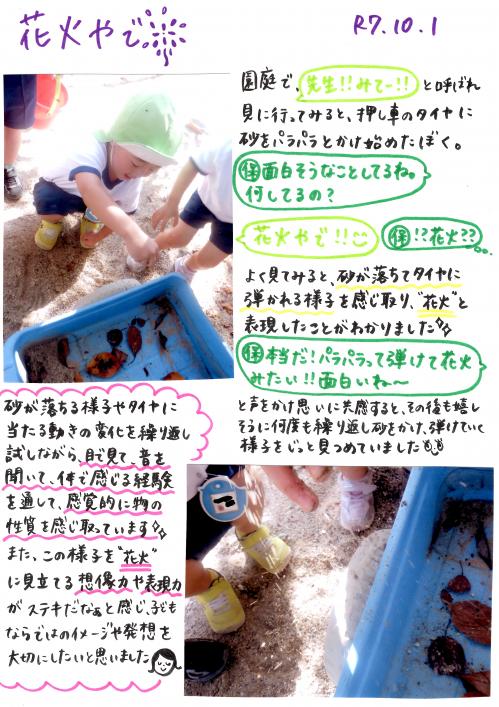 花火やで
R7.10.1
園庭で、先生!!みてー!!と呼ばれ
見に行ってみると、押し車のタイヤに
砂をパラパラとかけ始めたぼく。
保面白そうなことしてるね。
何してるの?
花火やで!!
保!?花火??
よく見てみると、砂が落ちてタイヤに
弾かれる様子を感じ取り、"花火"と
表現したことがわかりました
保本当だ!パラパラって弾けて花火
みたい!!面白いね〜
と声をかけ思いに共感すると、その後も嬉し
そうに何度も繰り返し砂をかけ、弾けていく
様子をじっと見つめていました
砂が落ちる様子やタイヤに
当たる動きの変化を繰り返し
試しながら、目で見て、音を
聞いて、体で感じる経験
を通して、感覚的に物の
性質を感じ取っています
また、この様子を"花火"
に見立てる想像力や表現力
がステキだなぁと感じ、子ども
ならではのイメージや発想を
大切にしたいと思いました